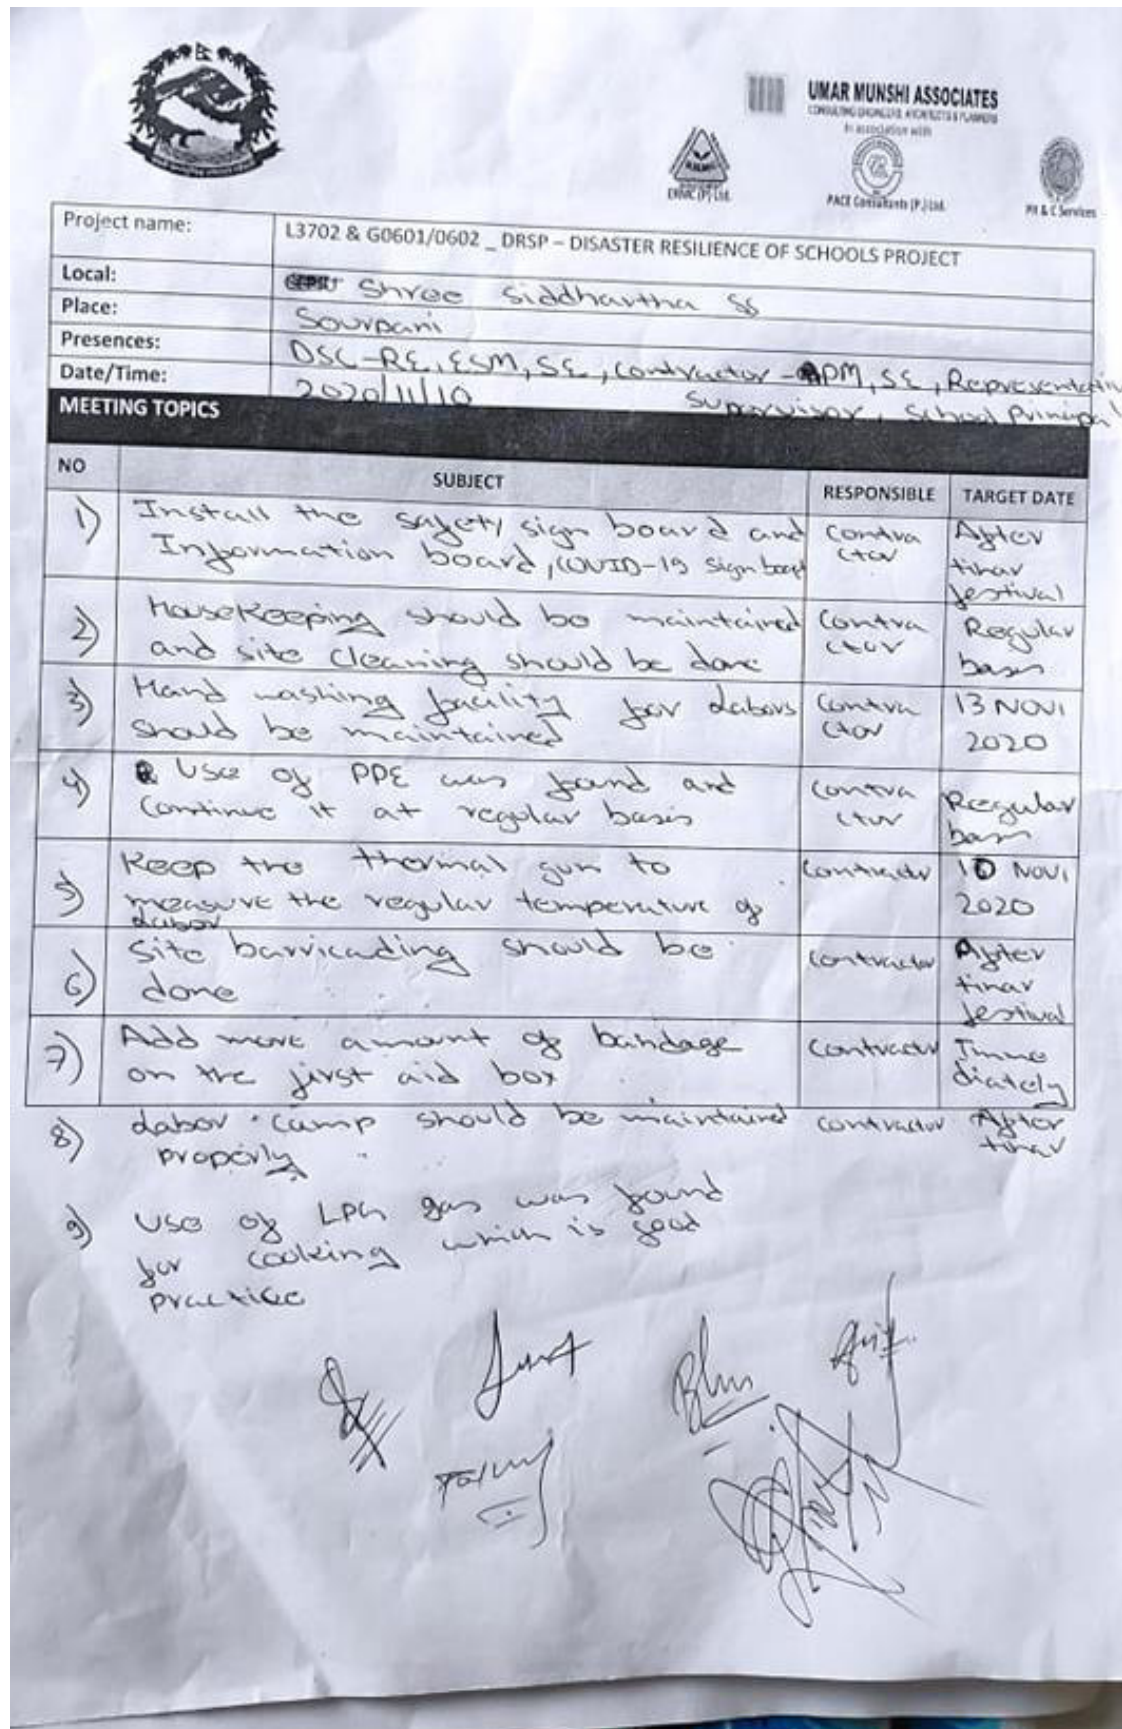 UMAR MUNSHI ASSOCIATES
CONSULTING ENGINEERS, ARCHITECTS & PLANNERS
In association with
ERMC (P) Ltd.
PACE Consultants (P.) Ltd.
PH & C Services
Project name: L3702 & G0601/0602 _ DRSP – DISASTER RESILIENCE OF SCHOOLS PROJECT
Local: Shree Siddhartha SS
Place: Sourpani
Presences: DSC-RE, ESM, SE, Contractor - PM, SE, Representative
Supervisor, School Principal
Date/Time: 2020/11/10
MEETING TOPICS
NO SUBJECT RESPONSIBLE TARGET DATE
1) Install the safety sign board and Contra After
Information board, COVID-19 sign board ctor tihar
festival
2) Housekeeping should be maintained Contra Regular
and site cleaning should be done ctor basis
3) Hand washing facility for labors Contra 13 NOV,
should be maintained ctor 2020
4) Use of PPE was found and Contra Regular
Continue it at regular basis ctor basis
5) Keep the thermal gun to Contractor 10 NOV,
measure the regular temperature of 2020
labor
6) Site barricading should be Contractor After
done tihar
festival
7) Add more amount of bandage Contractor Imme
on the first aid box diately
8) Labor camp should be maintained Contractor After
properly tihar
9) Use of LPG gas was found
for cooking which is good
practice